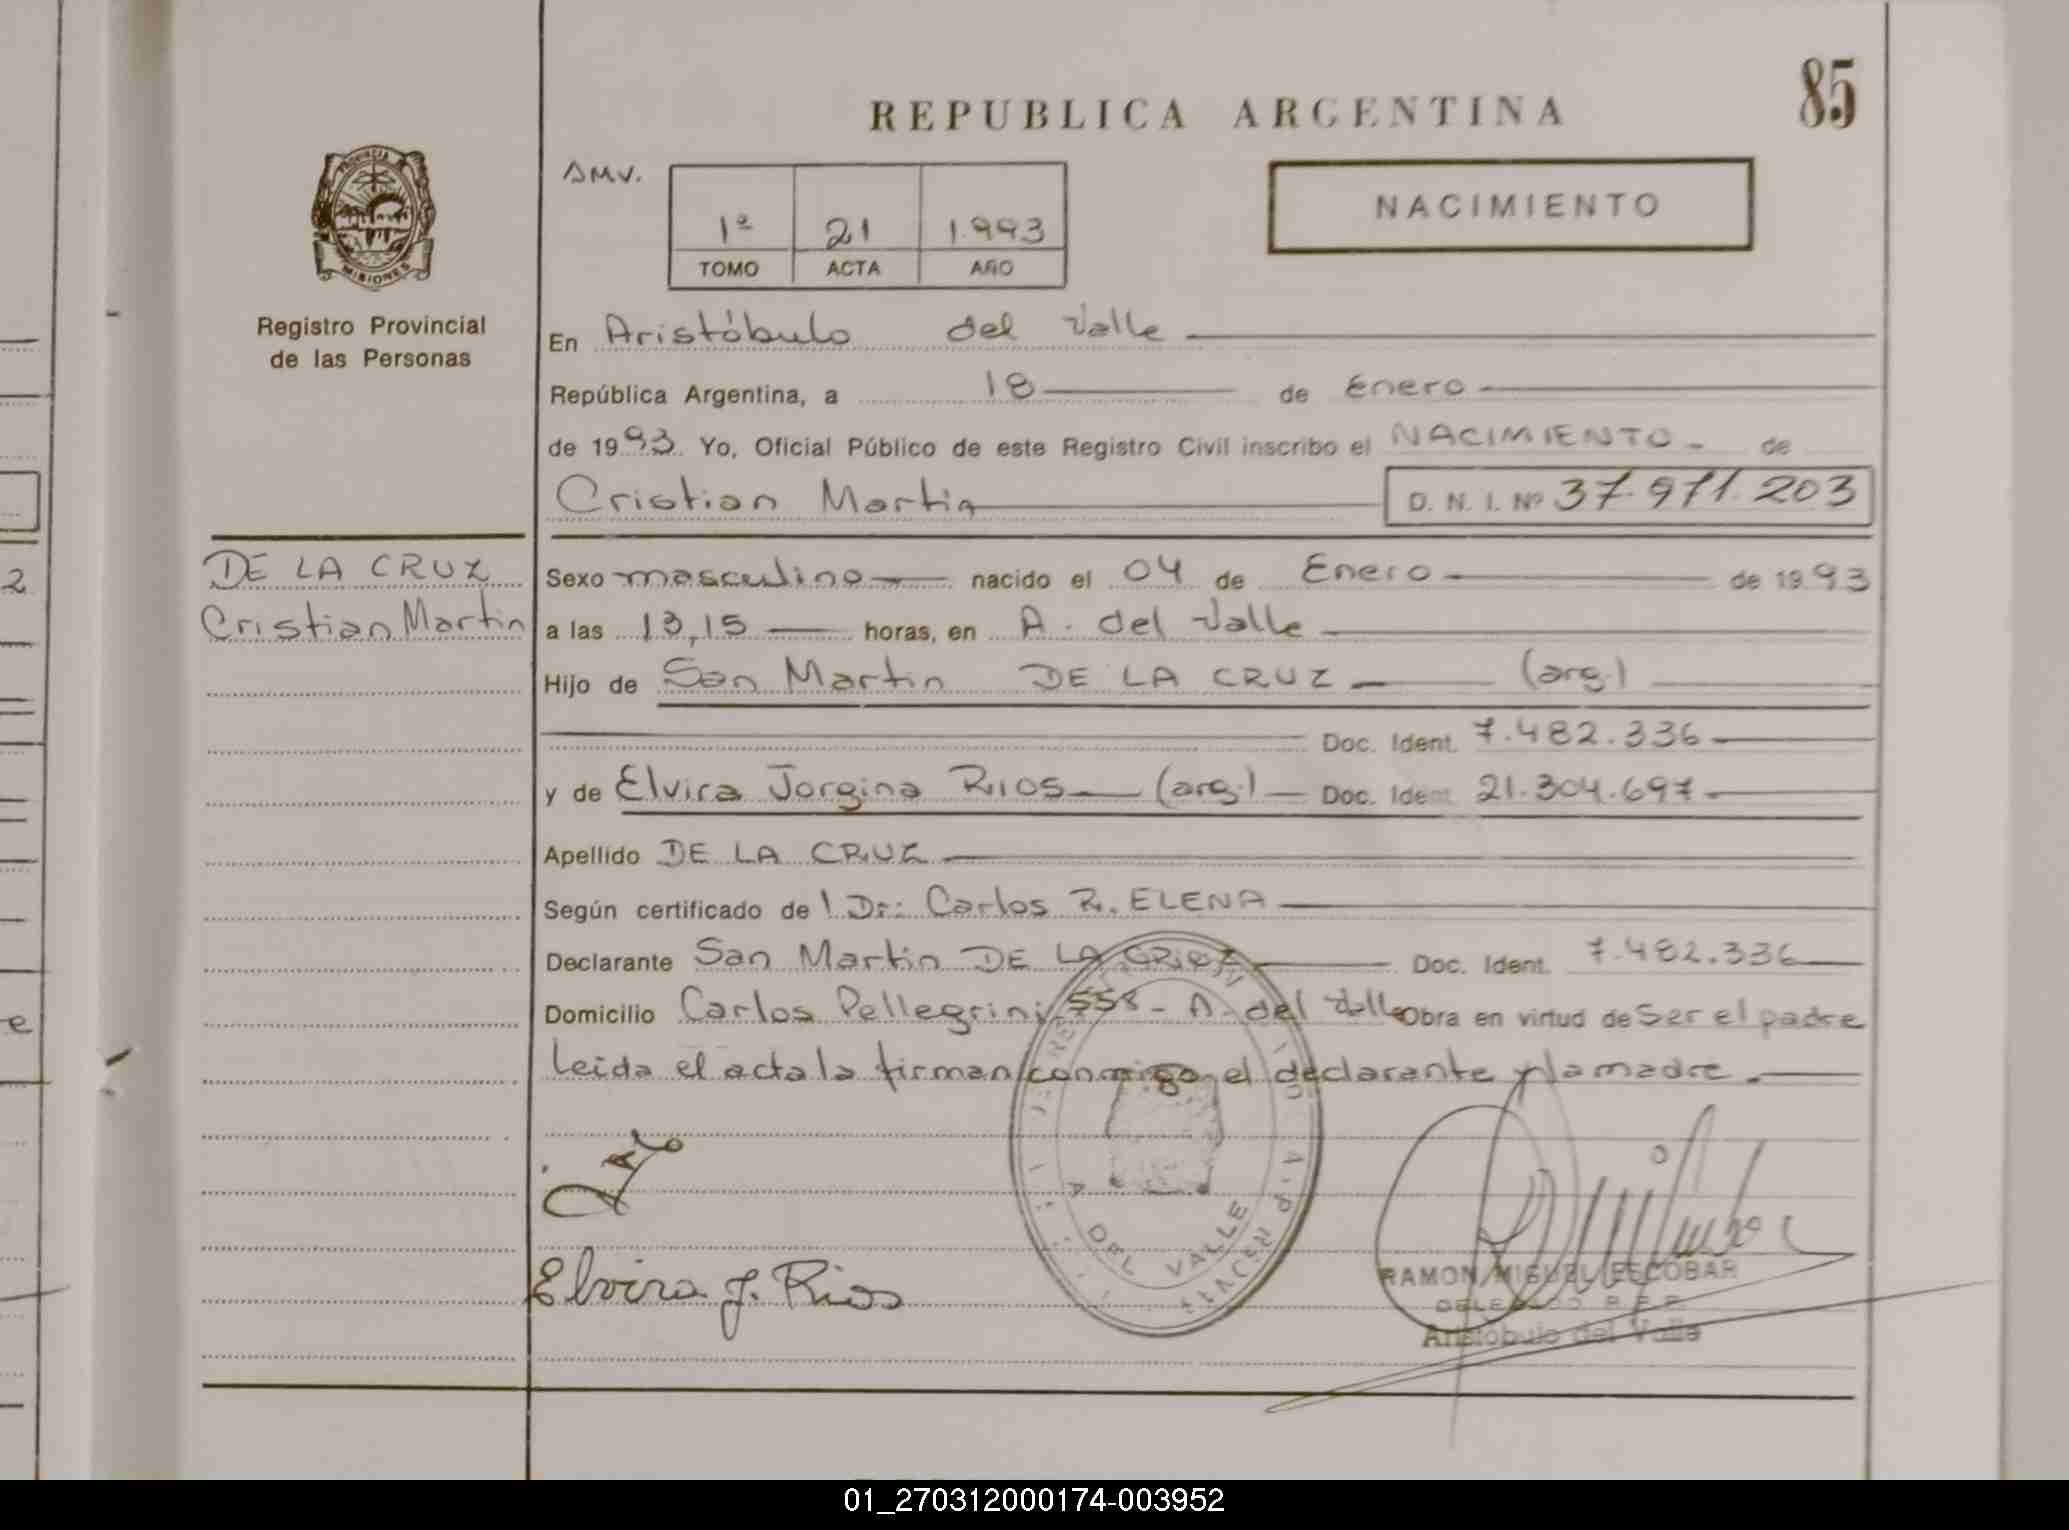 REPUBLICA ARGENTINA
85
AMV.
1º 21 1.993
TOMO ACTA AÑO
NACIMIENTO
PROVINCIA DE
MISIONES
Registro Provincial
de las Personas
En Aristóbulo del Valle
República Argentina, a 18 de Enero
de 1993 Yo, Oficial Público de este Registro Civil inscribo el NACIMIENTO - de
Cristian Martin D. N. I. Nº 37.971.203
DE LA CRUZ
Cristian Martin
Sexo masculino nacido el 04 de Enero de 1993
a las 13,15 horas, en A. del Valle
Hijo de San Martin DE LA CRUZ (arg.)
Doc. Ident. 7.482.336
y de Elvira Jorgina RIOS (arg.) Doc. Ident. 21.304.697
Apellido DE LA CRUZ
Según certificado de l Dr: Carlos R. ELENA
Declarante San Martin DE LA CRUZ Doc. Ident. 7.482.336
Domicilio Carlos Pellegrini 558 - A. del Valle Obra en virtud de ser el padre
Leida el acta la firman conmigo el declarante y la madre.
A DEL VALLE
Elvira J. Rios
RAMON MIGUEL ESCOBAR
DELEGADO R.P.P.
Aristóbulo del Valle
2
e
01_270312000174-003952